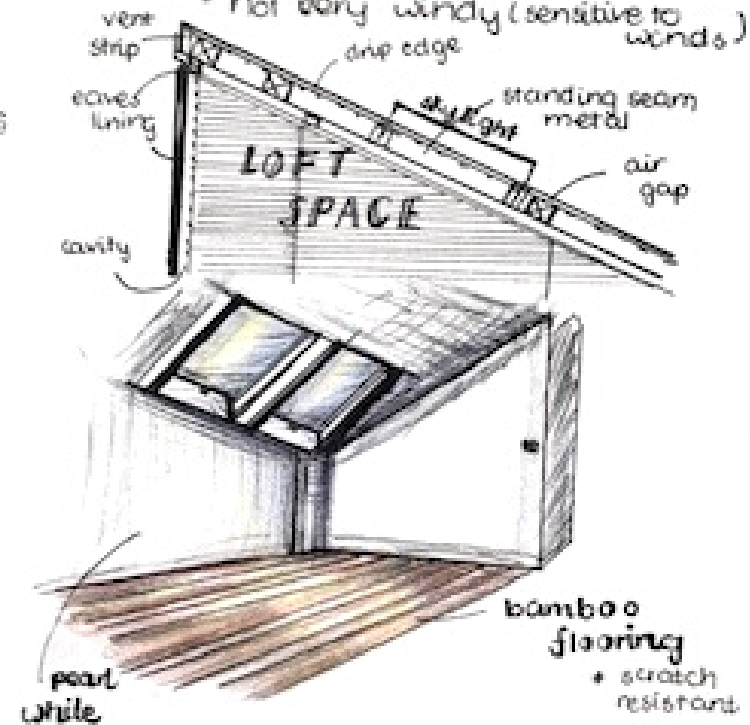 not very windy (sensitive to
winds)
vent
strip
drip edge
eaves
lining
skylight
standing seam
metal
air
gap
LOFT
SPACE
cavity
bamboo
flooring
+ scratch
resistant
pearl
white